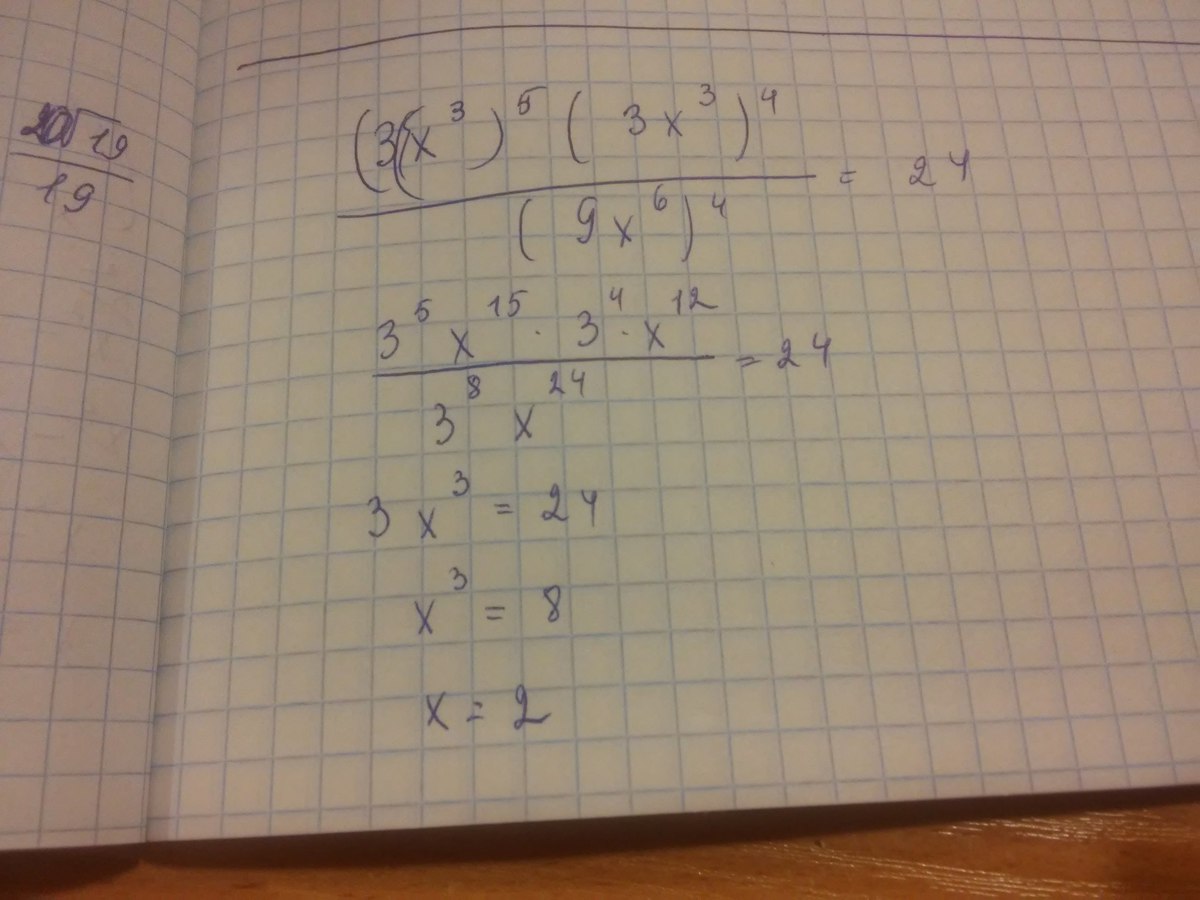 20√19 / 19
(3(x³)⁵ (3x³)⁴ / (9x⁶)⁴ = 24
3⁵x¹⁵ · 3⁴ · x¹² / 3⁸ x²⁴ = 24
3x³ = 24
x³ = 8
x = 2